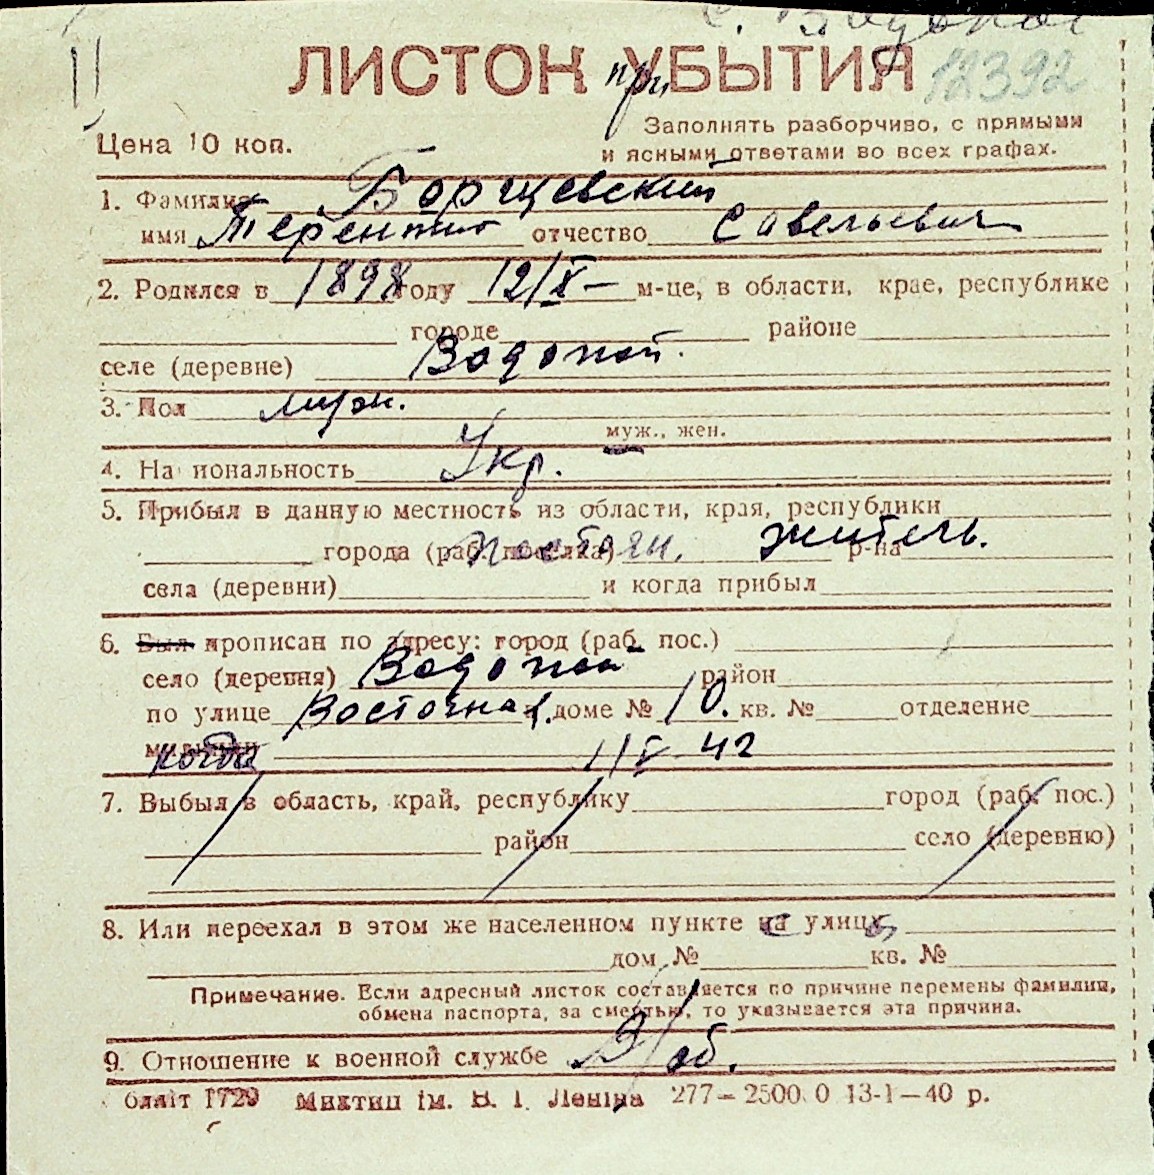 с. Водопой
ЛИСТОК при УБЫТИЯ 12392
Заполнять разборчиво, с прямыми
Цена 10 коп.
и ясными ответами во всех графах.
1. Фамилия Борщевский
имя Терентий отчество Савельевич
2. Родился в 1898 году 12/X – м-це, в области, крае, республике
городе районе
селе (деревне) Водопой.
3. Пол муж.
муж., жен.
4. На иональность Укр.
5. Прибыл в данную местность из области, края, республики
города (раб. поселка) постоян. житель. р-на
села (деревни) и когда прибыл
6. Был прописан по адресу: город (раб. пос.)
село (деревня) Водопой район
по улице Восточная. доме № 10. кв. № отделение
милиции когда 1/V-42
7. Выбыл в область, край, республику город (раб. пос.)
район село (деревню)
8. Или переехал в этом же населенном пункте на улицу
дом № кв. №
Примечание. Если адресный листок составляется по причине перемены фамилии,
обмена паспорта, за смертью, то указывается эта причина.
9. Отношение к военной службе об.
бліт 1729 Миктип ім. В. І. Леніна 277–2500 0 13-1–40 р.